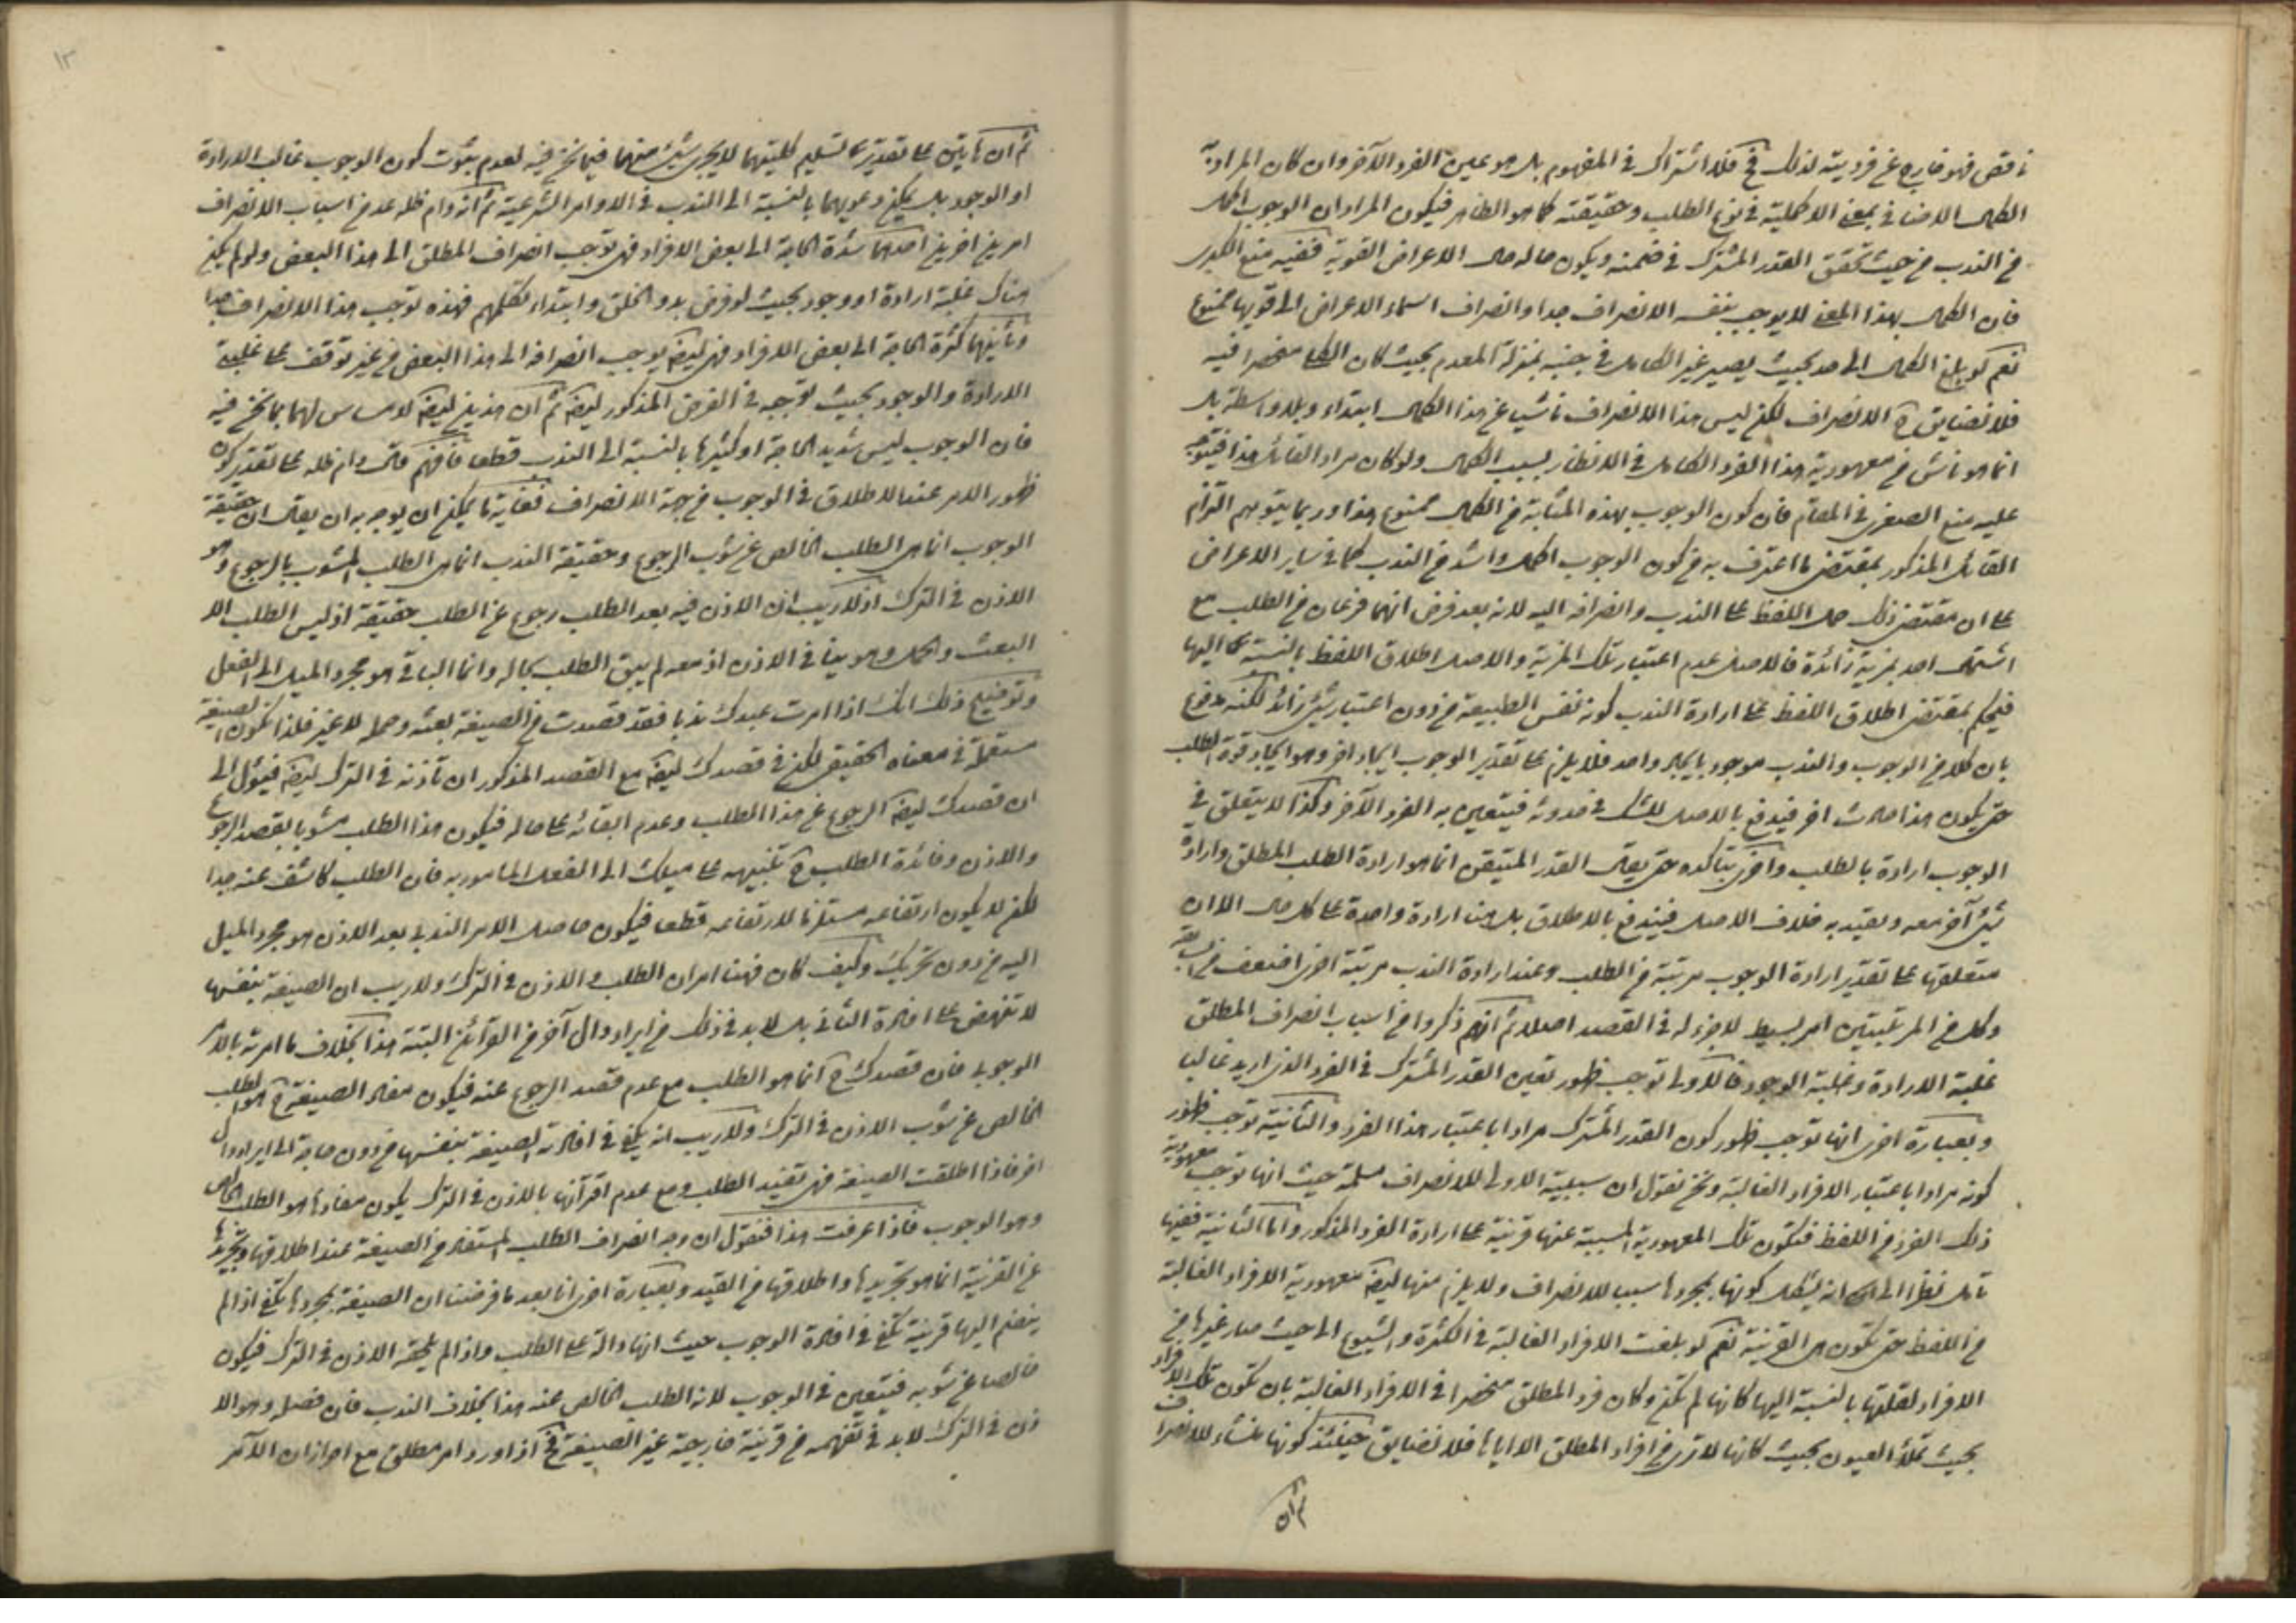 ناقص فهو خارج عن فرديته لذلك فح فلا اشتراك في المفهوم بل هو عين الفرد الآخر وان كان المراد به
الكمال الاضافي بمعنى الاكملية في نوع الطلب وحقيقته كما هو الظاهر فيكون المراد ان الوجوب اكمل
من الندب من حيث تحقق القدر المشترك في ضمنه ويكون حاله حال الاعراض القوية ففيه منع الكبرى
فان الكمال بهذا المعنى لا يوجب بنفسه الانصراف جدا وانصراف اسماء الاعراض الى قويها ممنوع
نعم لو بلغ الكمال الى حد بحيث يصير غير الكامل في جنبه بمنزلة المعدوم بحيث كان الكلي منحصرا فيه
فلا نضايق ح الانصراف لكن ليس هذا الانصراف ناشيا عن هذا الكمال ابتداء وبلا واسطة بل
انما هو ناش من معهودية هذا الفرد الكامل في الانظار بسبب الكمال ولو كان مراد القائل هذا فيتوجه
عليه منع الصغرى في المقام فان كون الوجوب بهذه المثابة من الكمال ممنوع هذا وربما يتوهم التزام
القائل المذكور بمقتضى ما اعترف به من كون الوجوب اكمل واشد من الندب كما في ساير الاعراض
على ان مقتضى ذلك حمل اللفظ على الندب وانصرافه اليه لانه بعد فرض انهما فرعان من الطلب مع
اشتمال احد بمزية زائدة فالاصل عدم اعتبار تلك المزية والاصل اطلاق اللفظ بالنسبة اليها
فيحكم بمقتضى اطلاق اللفظ على ارادة الندب كونه نفس الطبيعة من دون اعتبار شيء زائد لكنه مدفوع
بان كلا من الوجوب والندب موجود بايجاد واحد فلا يلزم على تقدير الوجوب ايجاد اخر وهو ايجاد قوة الطلب
حتى يكون هذا حادث اخر فيدفع بالاصل للشك في حدوثه فيتعين به الفرد الآخر وكذا لا يتعلق في
الوجوب ارادة بالطلب واخرى بتاكده حتى يقال القدر المتيقن انما هو ارادة الطلب المطلق وارادة
شيء آخر معه وتقييد به خلاف الاصل فيندفع بالاطلاق بل هنا ارادة واحدة على كل حال الا ان
متعلقها على تقدير ارادة الوجوب مرتبة من الطلب وعند ارادة الندب مرتبة اخرى اضعف من السابقة
وكل من المرتبتين امر بسيط لا جزء له في القصد اصلا ثم انهم ذكروا من اسباب انصراف المطلق
غلبة الارادة وغلبة الوجود فالاولى توجب ظهور تعين القدر المشترك في الفرد الذي اريد غالبا
وبعبارة اخرى انها توجب ظهور كون القدر المشترك مرادا باعتبار هذا الفرد والثانية توجب ظهور
كونه مرادا باعتبار الافراد الغالبة ونحن نقول ان سببية الاولى للانصراف مسلمة حيث انها توجب معهودية
ذلك الفرد من اللفظ فتكون تلك المعهودية المسببة عنها قرينة على ارادة الفرد المذكور واما الثانية ففيها
تامل نظرا الى انه يشكل كونها بمجردها سببا للانصراف ولا يلزم منها ايضا معهودية الافراد الغالبة
من اللفظ حتى تكون هي القرينة نعم لو بلغت الافراد الغالبة في الكثرة والشيوع الى حيث صار غيرها من
الافراد لقلتها بالنسبة اليها كانها لم تكن وكان فرد المطلق منحصرا في الافراد الغالبة بان تكون تلك الافراد
بحيث تملأ العيون بحيث كانها لا ترى من افراد المطلق الا اياها فلا نضايق حينئذ كونها منشاء للانصراف
ثم ان
١٣
ثم ان هاتين على تقدير تسليم كليتهما لا يجري شيء منهما فيما نحن فيه لعدم ثبوت كون الوجوب غالب الارادة
او الوجود بل يمكن دعويهما بالنسبة الى الندب في الاوامر الشرعية ثم انه دام ظله عد من اسباب الانصراف
امرين اخرين احدهما شدة الحاجة الى بعض الافراد فهي توجب انصراف المطلق الى هذا البعض ولو لم يكن
هناك غلبة ارادة او وجود بحيث لو فرض بدو الخلق وابتداء تكلمهم فهذه توجب هذا الانصراف جدا
وثانيهما كثرة الحاجة الى بعض الافراد فهي ايضا يوجب انصرافه الى هذا البعض من غير توقف على غلبة
الارادة والوجود بحيث توجبه في الفرض المذكور ايضا ثم ان هذين ايضا لا مساس لهما بما نحن فيه
فان الوجوب ليس شديد الحاجة او كثيرها بالنسبة الى الندب قطعا فافهم قال دام ظله على تقدير كون
ظهور الامر عند الاطلاق في الوجوب من جهة الانصراف فغاية ما يمكن ان يوجه به ان يقال ان حقيقة
الوجوب انما هي الطلب الخالص عن شوب الرجوع وحقيقة الندب انما هي الطلب المشوب بالرجوع وهو
الاذن في الترك اذ لا ريب ان الاذن فيه بعد الطلب رجوع عن الطلب حقيقة اذ ليس الطلب الا
البعث والحمل وهو ينافي الاذن اذ معه لم يبق الطلب بحاله وانما الباقي هو مجرد الميل الى الفعل
وتوضيح ذلك انك اذا امرت عبدك ندبا فقد قصدت من الصيغة بعثه وحمله لا غير فلذا تكون الصيغة
مستعملة في معناه الحقيقي لكن في قصدك ايضا مع القصد المذكور ان تأذنه في الترك ايضا فيؤل الى
ان قصدك ايضا الرجوع عن هذا الطلب وعدم ابقائه على حاله فيكون هذا الطلب مشوبا بقصد الرجوع
والاذن وفائدة الطلب ح تنبيهه على ميلك الى الفعل المامور به فان الطلب كاشف عنه جدا
لكن لا يكون ارتفاعه مستلزما لارتفاعه قطعا فيكون حاصل الامر الندبي بعد الاذن هو مجرد الميل
اليه من دون تحريك وكيف كان فهنا امران الطلب والاذن في الترك ولا ريب ان الصيغة بنفسها
لا تنهض على افادة الثاني بل لا بد في ذلك من ايراد دال آخر من القرائن البتة هذا بخلاف ما امرته بالامر
الوجوبي فان قصدك ح انما هو الطلب مع عدم قصد الرجوع عنه فيكون مفاد الصيغة ح هو الطلب
الخالص عن شوب الاذن في الترك ولا ريب انه يكفي في افادته الصيغة بنفسها من دون حاجة الى ايراد دال
اخر فاذا اطلقت الصيغة فهي تفيد الطلب ومع عدم اقترانها بالاذن في الترك يكون مفادها هو الطلب الخالص
وهو الوجوب فاذا عرفت هذا فنقول ان وجه انصراف الطلب المستفاد من الصيغة عند اطلاقها وتجريدها
عن القرينة انما هو تجريدها واطلاقها من القيد وبعبارة اخرى انا بعد ما فرضنا ان الصيغة بمجردها تكفي اذا لم
ينضم اليها قرينة تكفي في افادة الوجوب حيث انها دالة على الطلب واذا لم يلحقه الاذن في الترك فيكون
خالصا عن شوبه فيتعين في الوجوب لانه الطلب الخالص عنه هذا بخلاف الندب فان فصله وهو الا
ذن في الترك لا بد في تفهيمه من قرينة خارجية غير الصيغة فح اذا ورد امر مطلق مع احراز ان الآمر